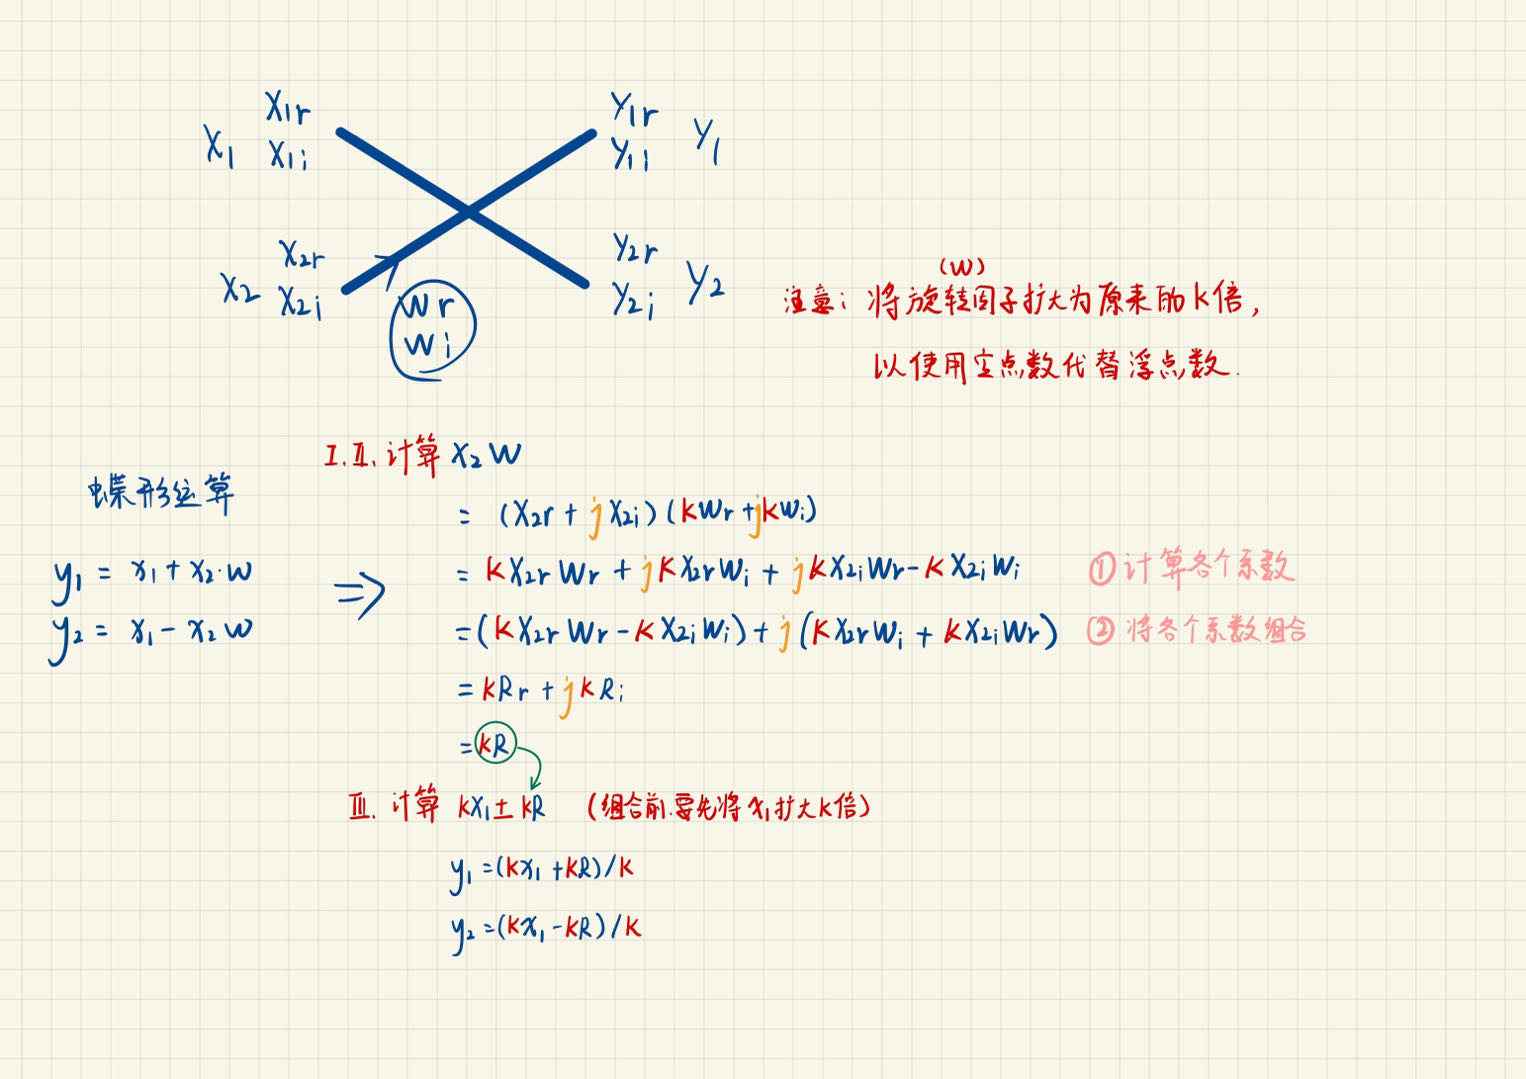 X₁ X₁r Y₁r Y₁
X₁i Y₁i
X₂ X₂r Y₂r Y₂
X₂i Y₂i
Wr
Wi
(W)
注意：将旋转因子扩大为原来的K倍,
以使用定点数代替浮点数.
蝶形运算
y₁ = x₁ + x₂·w
y₂ = x₁ - x₂ w
⇒
I.II. 计算 X₂W
= (X₂r + j X₂i) (KWr + jKWi)
= K X₂r Wr + j K X₂r Wi + j K X₂i Wr - K X₂i Wi ① 计算各个系数
= (K X₂r Wr - K X₂i Wi) + j (K X₂r Wi + K X₂i Wr) ② 将各个系数组合
= KRr + jKRi
= KR
III. 计算 KX₁ ± KR (组合前.要先将x₁扩大K倍)
y₁ = (Kx₁ + KR)/K
y₂ = (Kx₁ - KR)/K